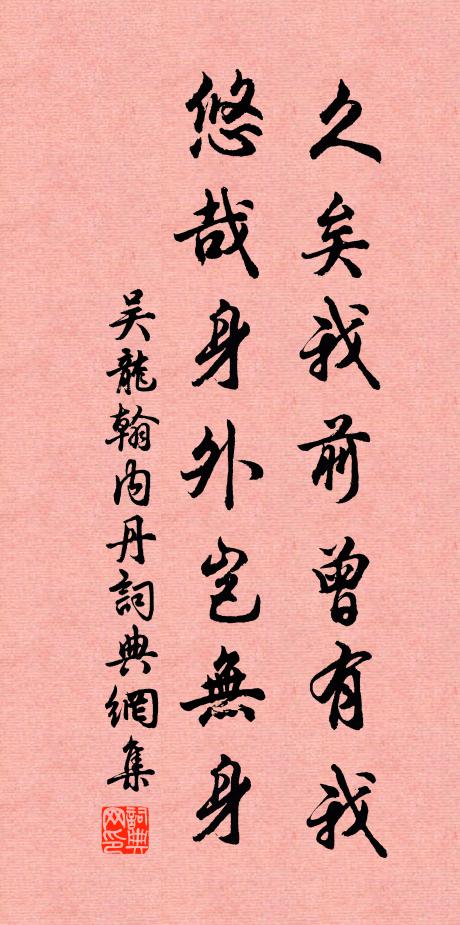 久矣我前曾有我
悠哉身外岂無身
吴龍翰内丹詞典網集
詞典网印